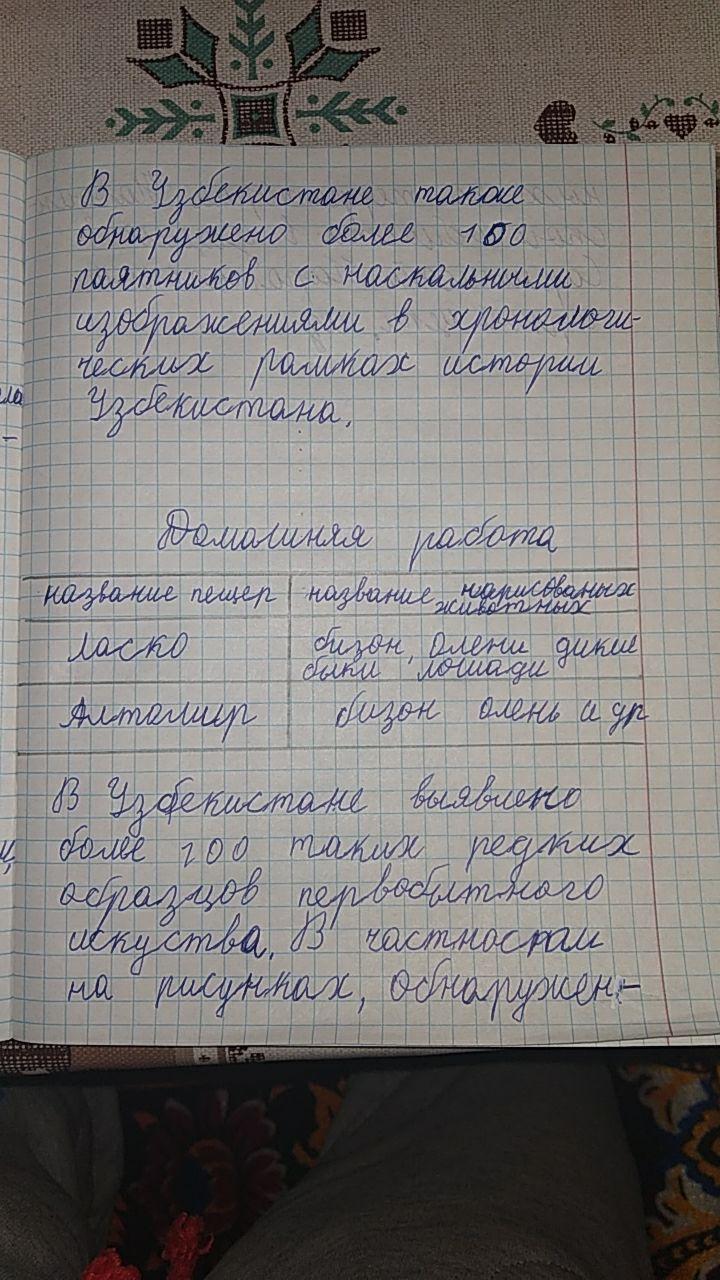 В Узбекистане также
обнаружено более 100
паятников с наскальными
изображениями в хронологи-
ческих рамках истории
Узбекистана.
Домашняя работа
название пещер название нарисованых
животных
Ласко бизон, олени дикие
быки лошади
Альтамир бизон олень и др
В Узбекистане выявлено
более 100 таких редких
образцов первобытного
искуства. В частностам
на рисунках, обнаружен-